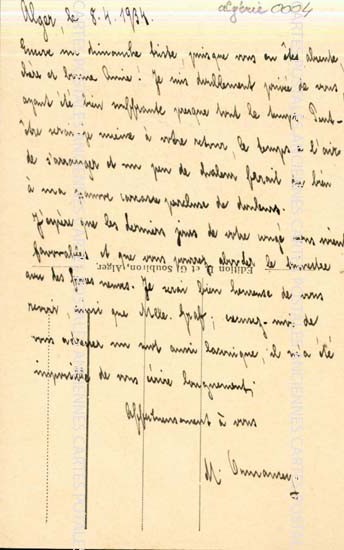 Alger, le 8.4.1934.
algérie 0094
Encore un dimanche triste, puisque vous en êtes absente,
chère et bonne Amie! Je suis doublement privée de vous,
ayant été bien souffrante presque tout le temps. Peut-
être serai-je mieux à votre retour, le temps a l'air
de s'arranger et un peu de chaleur ferait du bien
à ma pauvre carcasse percluse de douleurs.
J'espère que les derniers jours de votre congé vous seront
favorables et que vous pourrez aborder le trimestre
Edition R. et G. Soubiron, Alger
avec des forces neuves. Je serai bien heureuse de vous
revoir, ainsi que Mlle. Graf; excusez-moi de
vous adresser un mot aussi laconique, il m'a été
impossible de vous écrire longuement,
Affectueusement à vous
M.